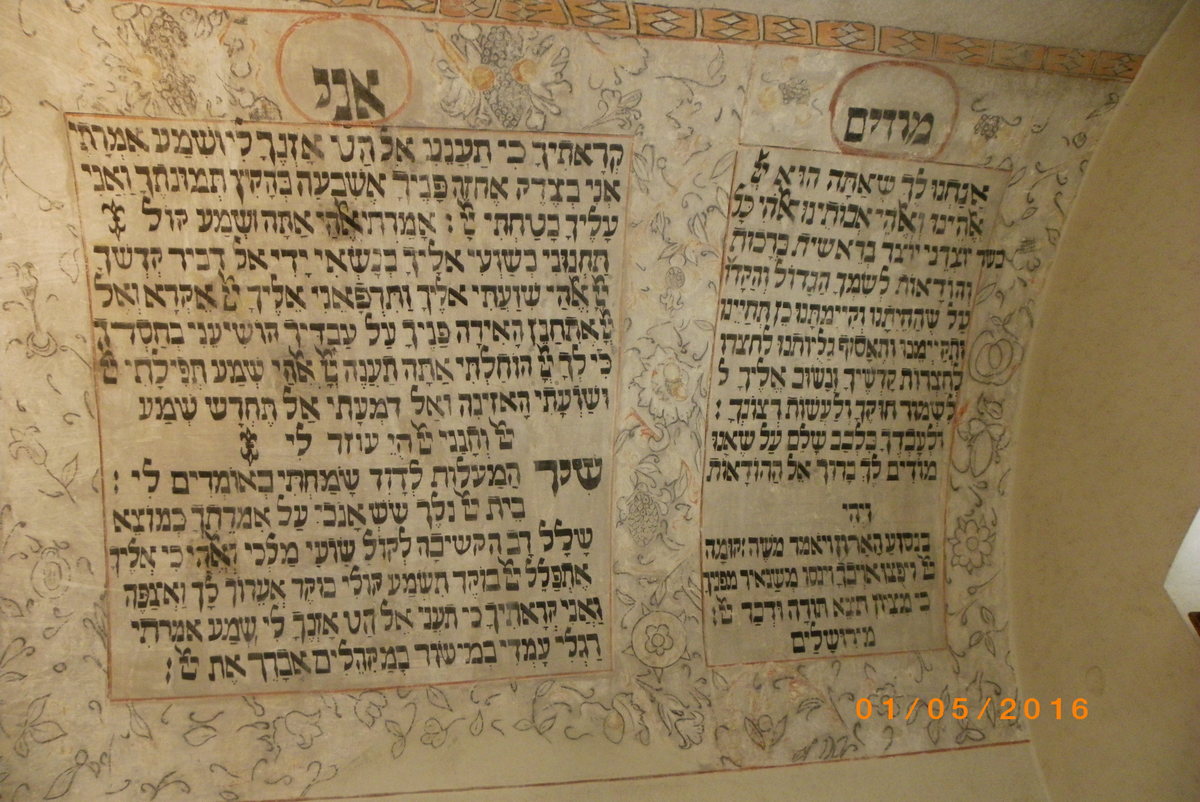 מודים
אנחנו לך שאתה הוא
אלהינו ואלהי אבותינו אלהי כל
בשר יוצרנו יוצר בראשית ברכות
והודאות לשמך הגדול והקדו
על שהחיתנו וקיימתנו כן תחיינו
ותקיימנו ותאסוף גליותנו לחצרו
לחצרות קדשיך ונשוב אליך ל
לשמור חוקך ולעשות רצונך :
ולעבדך בלבב שלם על שאנו
מודים לך ברוך אל ההודאות
ויהי
בנסוע הארון ויאמר משה קומה
ויפוצו אויבך וינסו משנאיך מפניך
כי מציון תצא תורה ודבר
מירושלים
אני
קראתיך כי תענני אל הט אזנך לי ושמע אמרתי
אני בצדק אחזה פניך אשבעה בהקיץ תמונתך ואני
עליך בטחתי : אמרתי אלהי אתה ושמע קול
תחנוני בשועי אליך בנשאי ידי אל דביר קדשך
אלהי שועתי אליך ותרפאני אליך אקרא ואל
אתחנן האירה פניך על עבדיך הושיעני בחסדך
כי לך הוחלתי אתה תענה אלהי שמע תפילתי
ושועתי האזינה ואל דמעתי אל תחרש שמע
וחנני היי עוזר לי
שיר המעלות לדוד שמחתי באומרים לי :
בית נלך שש אנכי על אמרתך כמוצא
שלל רב הקשיבה לקול שועי מלכי ואלהי כי אליך
אתפלל בוקר תשמע קולי בוקר אערוך לך ואצפה
ואני קראתיך כי תענני אל הט אזנך לי שמע אמרתי
רגלי עמדי במישור במקהלים אברך את :
01/05/2016